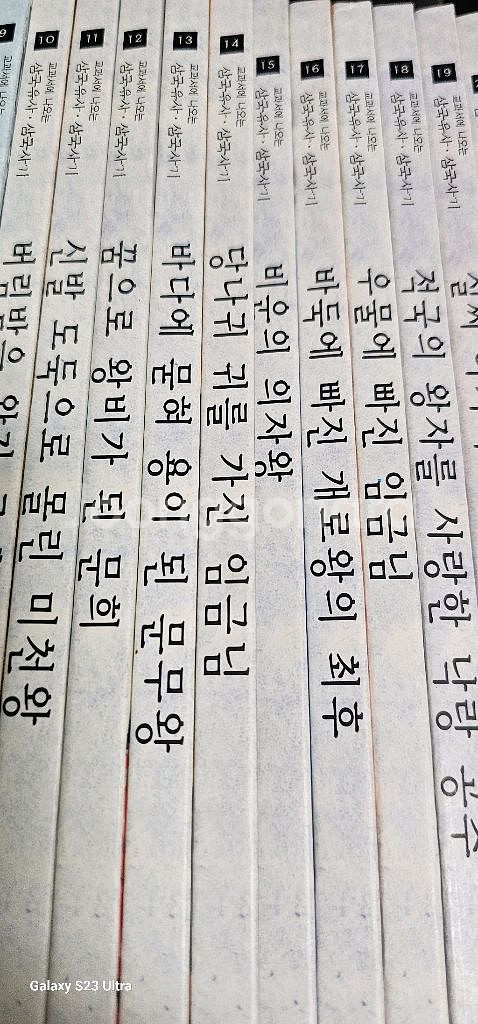 9
10
교과서에 나오는
삼국유사·삼국사기
버림받은 왕자
11
교과서에 나오는
삼국유사·삼국사기
신발 도둑으로 몰린 미천왕
12
교과서에 나오는
삼국유사·삼국사기
꿈으로 왕비가 된 문희
13
교과서에 나오는
삼국유사·삼국사기
바다에 묻혀 용이 된 문무왕
14
교과서에 나오는
삼국유사·삼국사기
당나귀 귀를 가진 임금님
15
교과서에 나오는
삼국유사·삼국사기
비운의 의자왕
16
교과서에 나오는
삼국유사·삼국사기
바둑에 빠진 개로왕의 최후
17
교과서에 나오는
삼국유사·삼국사기
우물에 빠진 임금님
18
교과서에 나오는
삼국유사·삼국사기
적국의 왕자를 사랑한 낙랑 공주
19
교과서에 나오는
삼국유사·삼국사기
Galaxy S23 Ultra